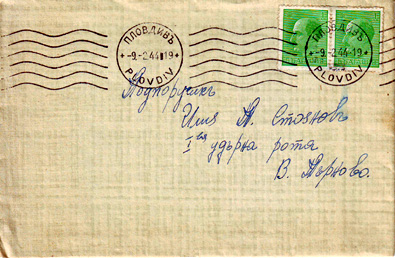 ПЛОВДИВЪ
-9.-2.44 19
PLOVDIV
ПЛОВДИВЪ
-9.-2.44-19
PLOVDIV
Подпоручикъ
Илия А. Стояновъ
I ва
ударна рота
В. Търново.